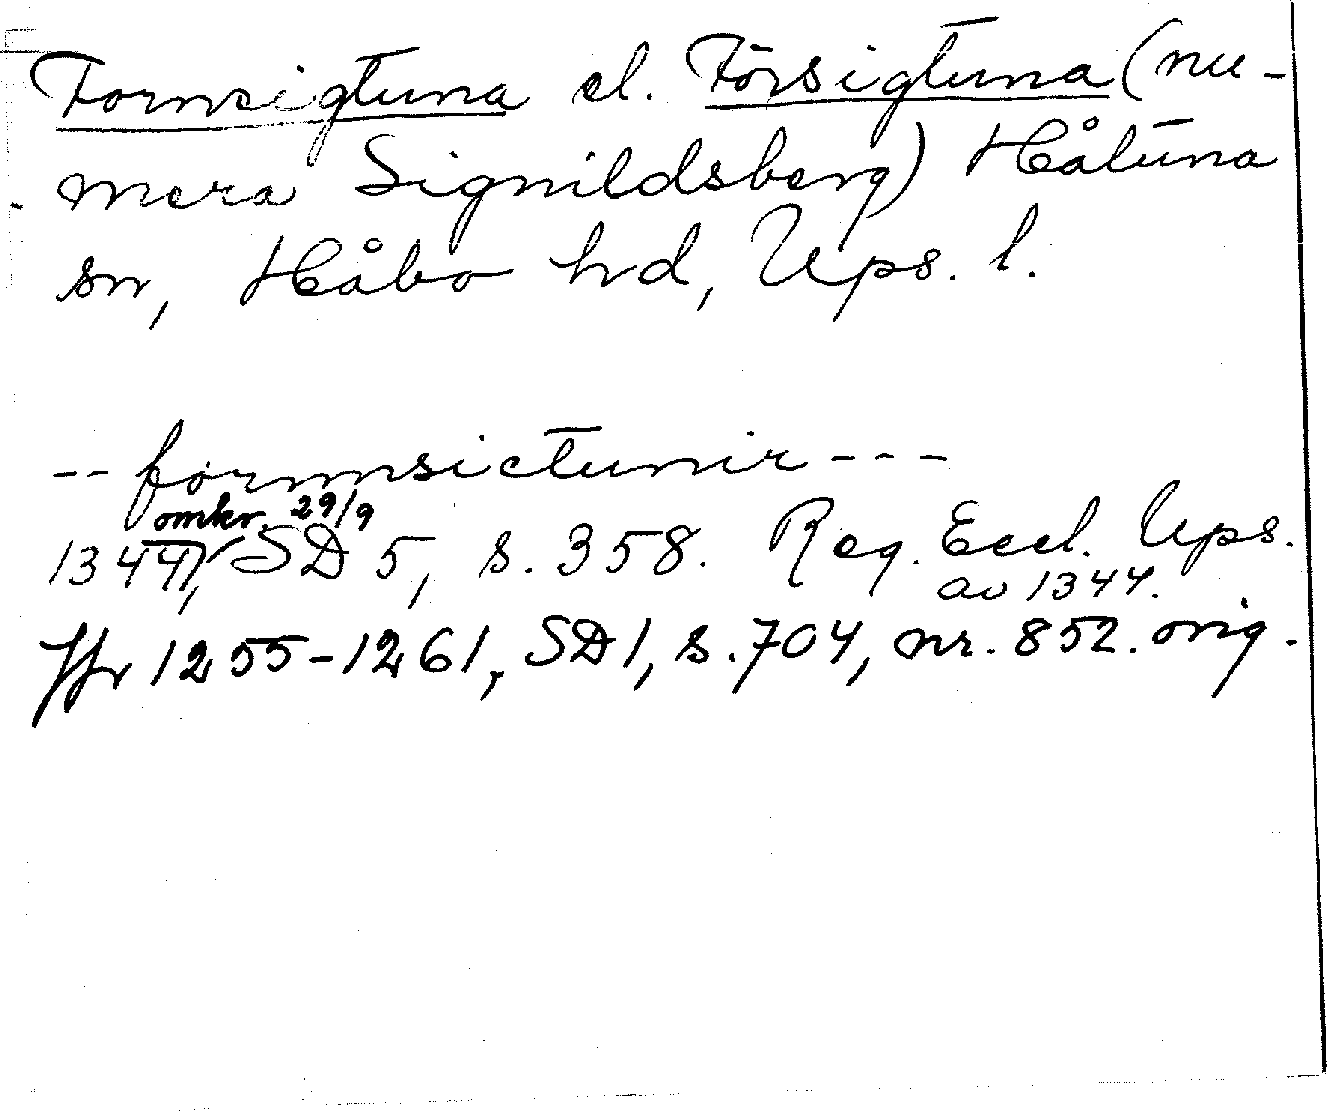 Fornsigtuna el. Försigtuna (nu-
mera Signildsberg) Håtuna
sn, Håbo hd, Ups. l.
-- formsictunir ---
omkr. 29/9
1344, SD 5, s. 358. Reg. Eccl. Ups.
av 1344.
Jfr 1255-1261, SD 1, s. 704, nr. 852. orig.